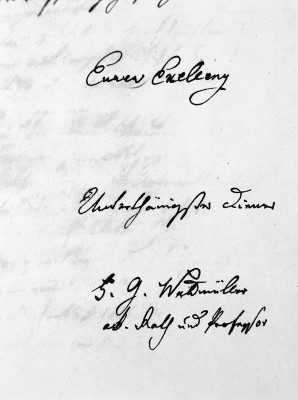 Eurer Excellenz
Unterthänigster Diener
F. G. Waldmüller
ak. Rath und Professor